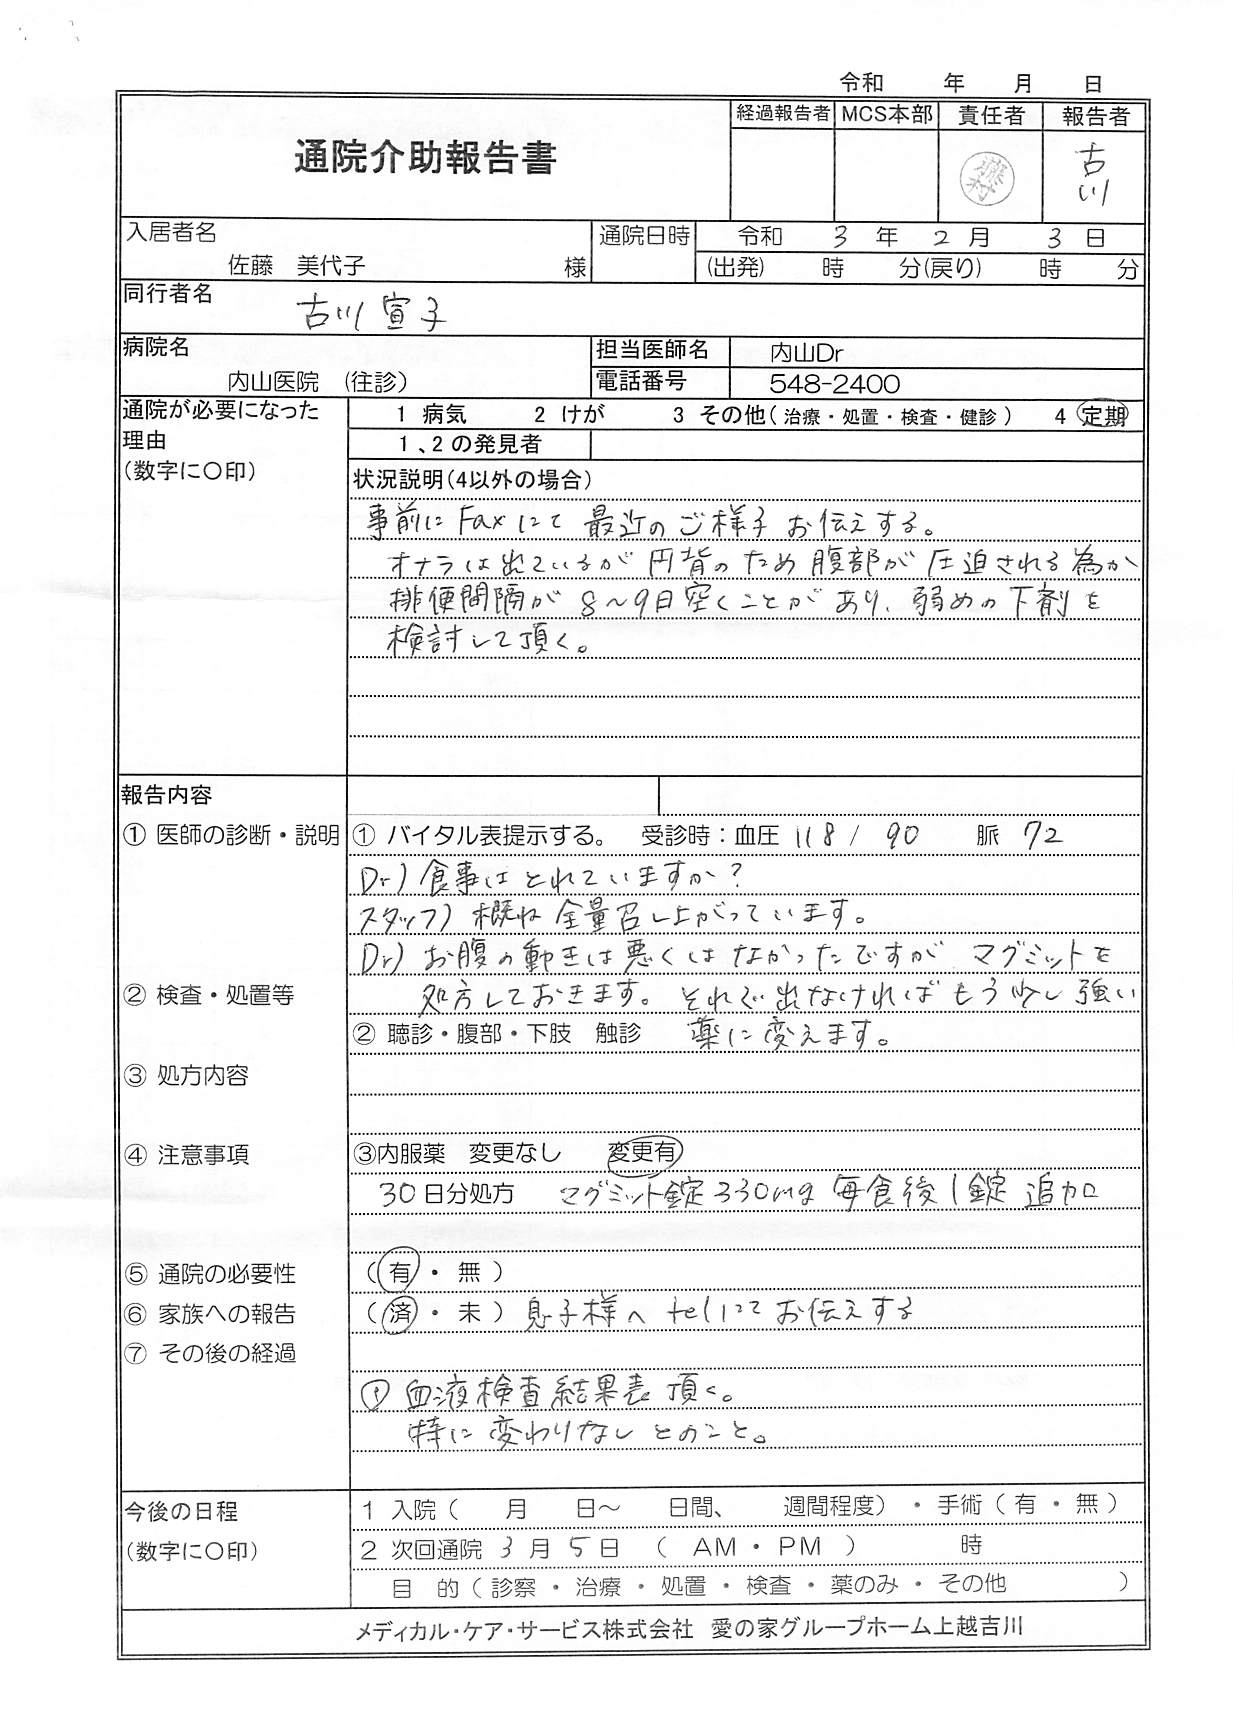 令和 年 月 日
通院介助報告書
経過報告者 MCS本部 責任者 報告者
古川
入居者名
佐藤 美代子 様
通院日時 令和 3 年 2 月 3 日
(出発) 時 分(戻り) 時 分
同行者名
古川 宣子
病院名
内山医院 (往診)
担当医師名 内山Dr
電話番号 548-2400
通院が必要になった
理由
(数字に〇印)
1 病気 2 けが 3 その他(治療・処置・検査・健診) 4 定期
1、2の発見者
状況説明(4以外の場合)
事前にFaxにて最近のご様子お伝えする。
オナラは出ているが円背のため腹部が圧迫される為か
排便間隔が8〜9日空くことがあり、弱めの下剤を
検討して頂く。
報告内容
① 医師の診断・説明
① バイタル表提示する。 受診時:血圧 118 / 90 脈 72
Dr) 食事はとれていますか?
スタッフ) 概ね全量召し上がっています。
Dr) お腹の動きは悪くはなかったですが マグミットを
② 検査・処置等
処方しておきます。それで出なければもう少し強い
② 聴診・腹部・下肢 触診 薬に変えます。
③ 処方内容
④ 注意事項
③内服薬 変更なし 変更有
30日分処方 マグミット錠330mg 毎食後1錠 追加
⑤ 通院の必要性 (有・無)
⑥ 家族への報告 (済・未) 息子様へtelにてお伝えする
⑦ その後の経過
① 血液検査結果表頂く。
特に変わりなしとのこと。
今後の日程
(数字に〇印)
1 入院( 月 日〜 日間、 週間程度)・手術(有・無)
2 次回通院 3 月 5 日 ( AM・PM ) 時
目 的(診察・治療・処置・検査・薬のみ・その他 )
メディカル・ケア・サービス株式会社 愛の家グループホーム上越吉川